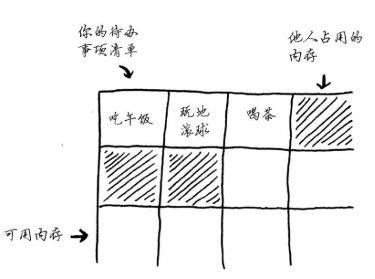 你的待办
事项清单
他人占用的
内存
吃午饭
玩地
滚球
喝茶
可用内存